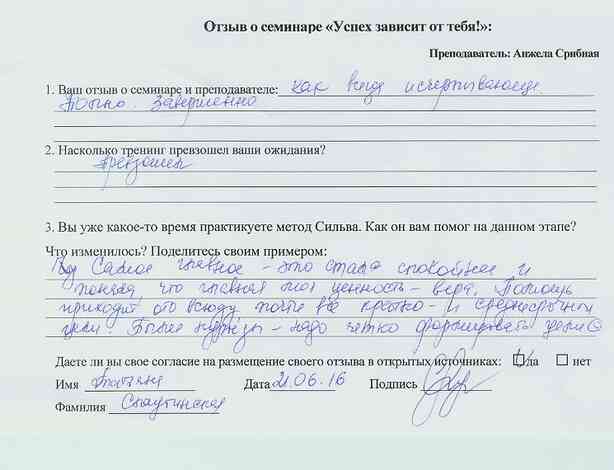 Отзыв о семинаре «Успех зависит от тебя!»:
Преподаватель: Анжела Срибная
1. Ваш отзыв о семинаре и преподавателе: как всегда исчерпывающе
Полно. Завершенно
2. Насколько тренинг превзошел ваши ожидания?
Превзошел
3. Вы уже какое-то время практикуете метод Сильва. Как он вам помог на данном этапе?
Что изменилось? Поделитесь своим примером:
Самое главное - это стала спокойнее и
поняла, что главная моя ценность - вера. Помощь
приходит ото всюду почти на кратко- и среднесрочные
цели. Были курьезы - надо четко формировать цели
Даете ли вы свое согласие на размещение своего отзыва в открытых источниках: да нет
Имя Татьяна Дата 21.06.16 Подпись
Фамилия